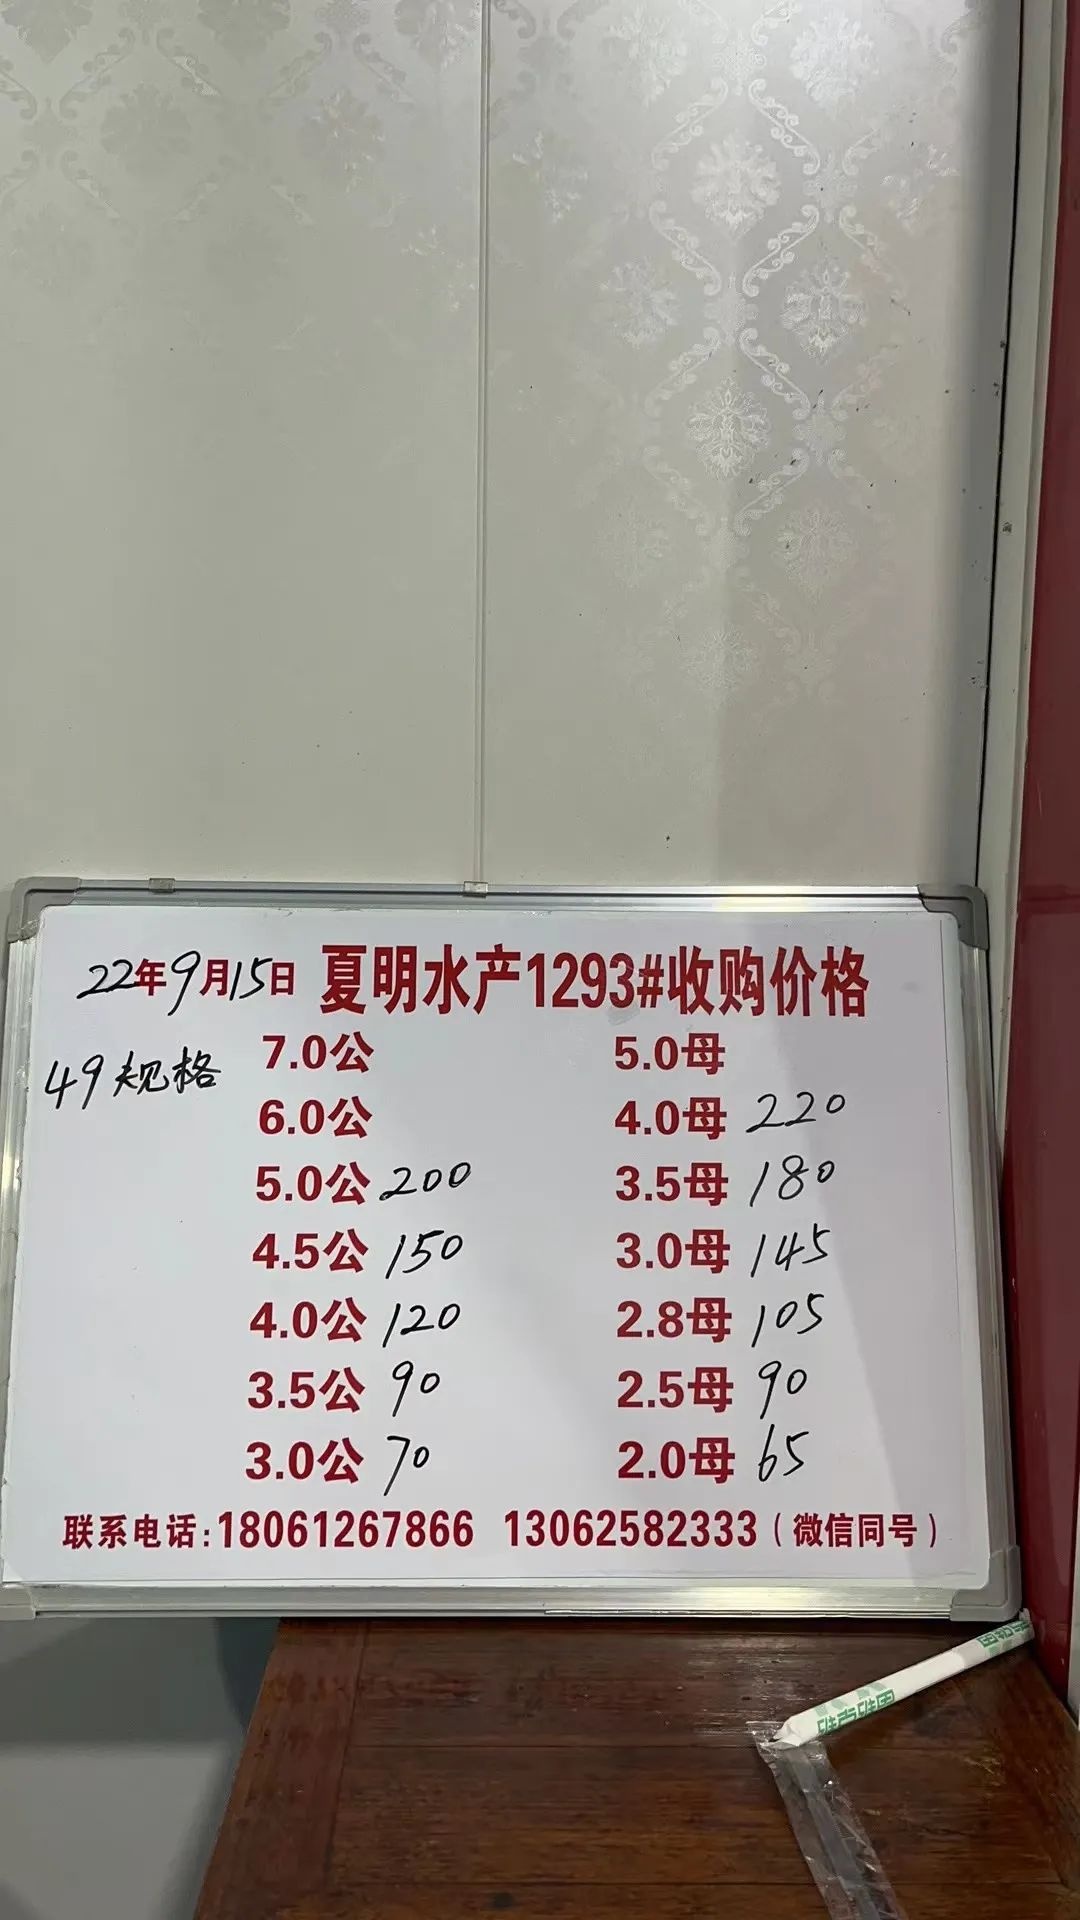 22年9月15日 夏明水产1293#收购价格
49规格
7.0公 5.0母
6.0公 4.0母 220
5.0公 200 3.5母 180
4.5公 150 3.0母 145
4.0公 120 2.8母 105
3.5公 90 2.5母 90
3.0公 70 2.0母 65
联系电话:18061267866 13062582333（微信同号）